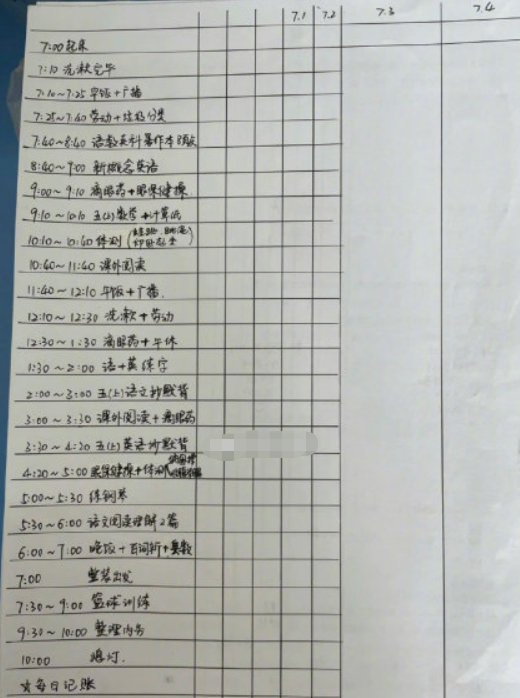 7.1 7.2 7.3 7.4
7:00 起床
7:10 洗漱完毕
7:10~7:25 早饭+广播
7:25~7:40 劳动+垃圾分类
7:40~8:40 语数英科暑作本
8:40~9:00 新概念英语
9:00~9:10 滴眼药+眼保健操
9:10~10:10 五(上)数学+计算纸
10:10~10:40 体测(
10:40~11:40 课外阅读
11:40~12:10 午饭+广播.
12:10~12:30 洗漱+劳动
12:30~1:30 滴眼药+午休
1:30~2:00 语+英练字
2:00~3:00 五(上)语文抄默背
3:00~3:30 课外阅读+滴眼药
3:30~4:20 五(上)英语抄默背
4:20~5:00 眼保健操+体测
5:00~5:30 练钢琴
5:30~6:00 语文阅读理解2篇
6:00~7:00 晚饭+百词斩+奥数
7:00 整装出发
7:30~9:00 篮球训练
9:30~10:00 整理内务
10:00 熄灯.
☆每日记账